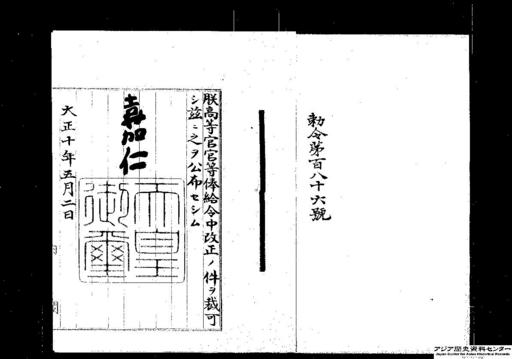 勅令第百八十六號
朕高等官官等俸給令中改正ノ件ヲ裁可
シ茲ニ之ヲ公布セシム
嘉仁
天皇御璽
大正十年五月二日
内閣
アジア歴史資料センター
Japan Center for Asian Historical Records